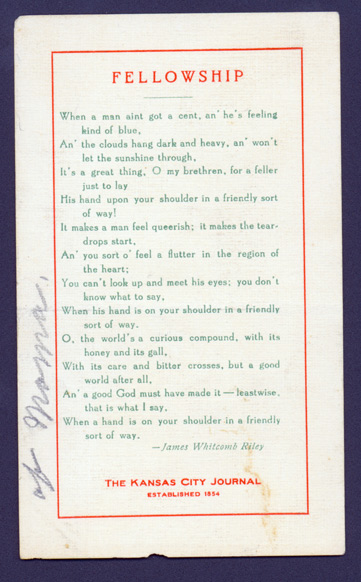 FELLOWSHIP
When a man aint got a cent, an' he's feeling
kind of blue,
An' the clouds hang dark and heavy, an' won't
let the sunshine through,
It's a great thing, O my brethren, for a feller
just to lay
His hand upon your shoulder in a friendly sort
of way!
It makes a man feel queerish; it makes the tear-
drops start,
An' you sort o' feel a flutter in the region of
the heart;
You can't look up and meet his eyes; you don't
know what to say,
When his hand is on your shoulder in a friendly
sort of way.
O, the world's a curious compound, with its
honey and its gall,
With its care and bitter crosses, but a good
world after all,
An' a good God must have made it—leastwise,
that is what I say,
When a hand is on your shoulder in a friendly
sort of way.
—James Whitcomb Riley
THE KANSAS CITY JOURNAL
ESTABLISHED 1854
of Mama.